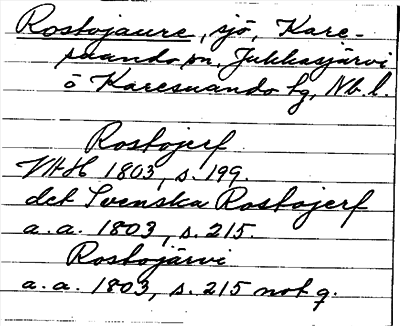 Rostojaure, sjö, Kare-
suando sn, Jukkasjärvi
o Karesuando tg, Nb. l.
Rostojerf
VAH 1803, s. 199.
det Svenska Rostojerf
a. a. 1803, s. 215.
Rostojärvi
a. a. 1803, s. 215 not q.